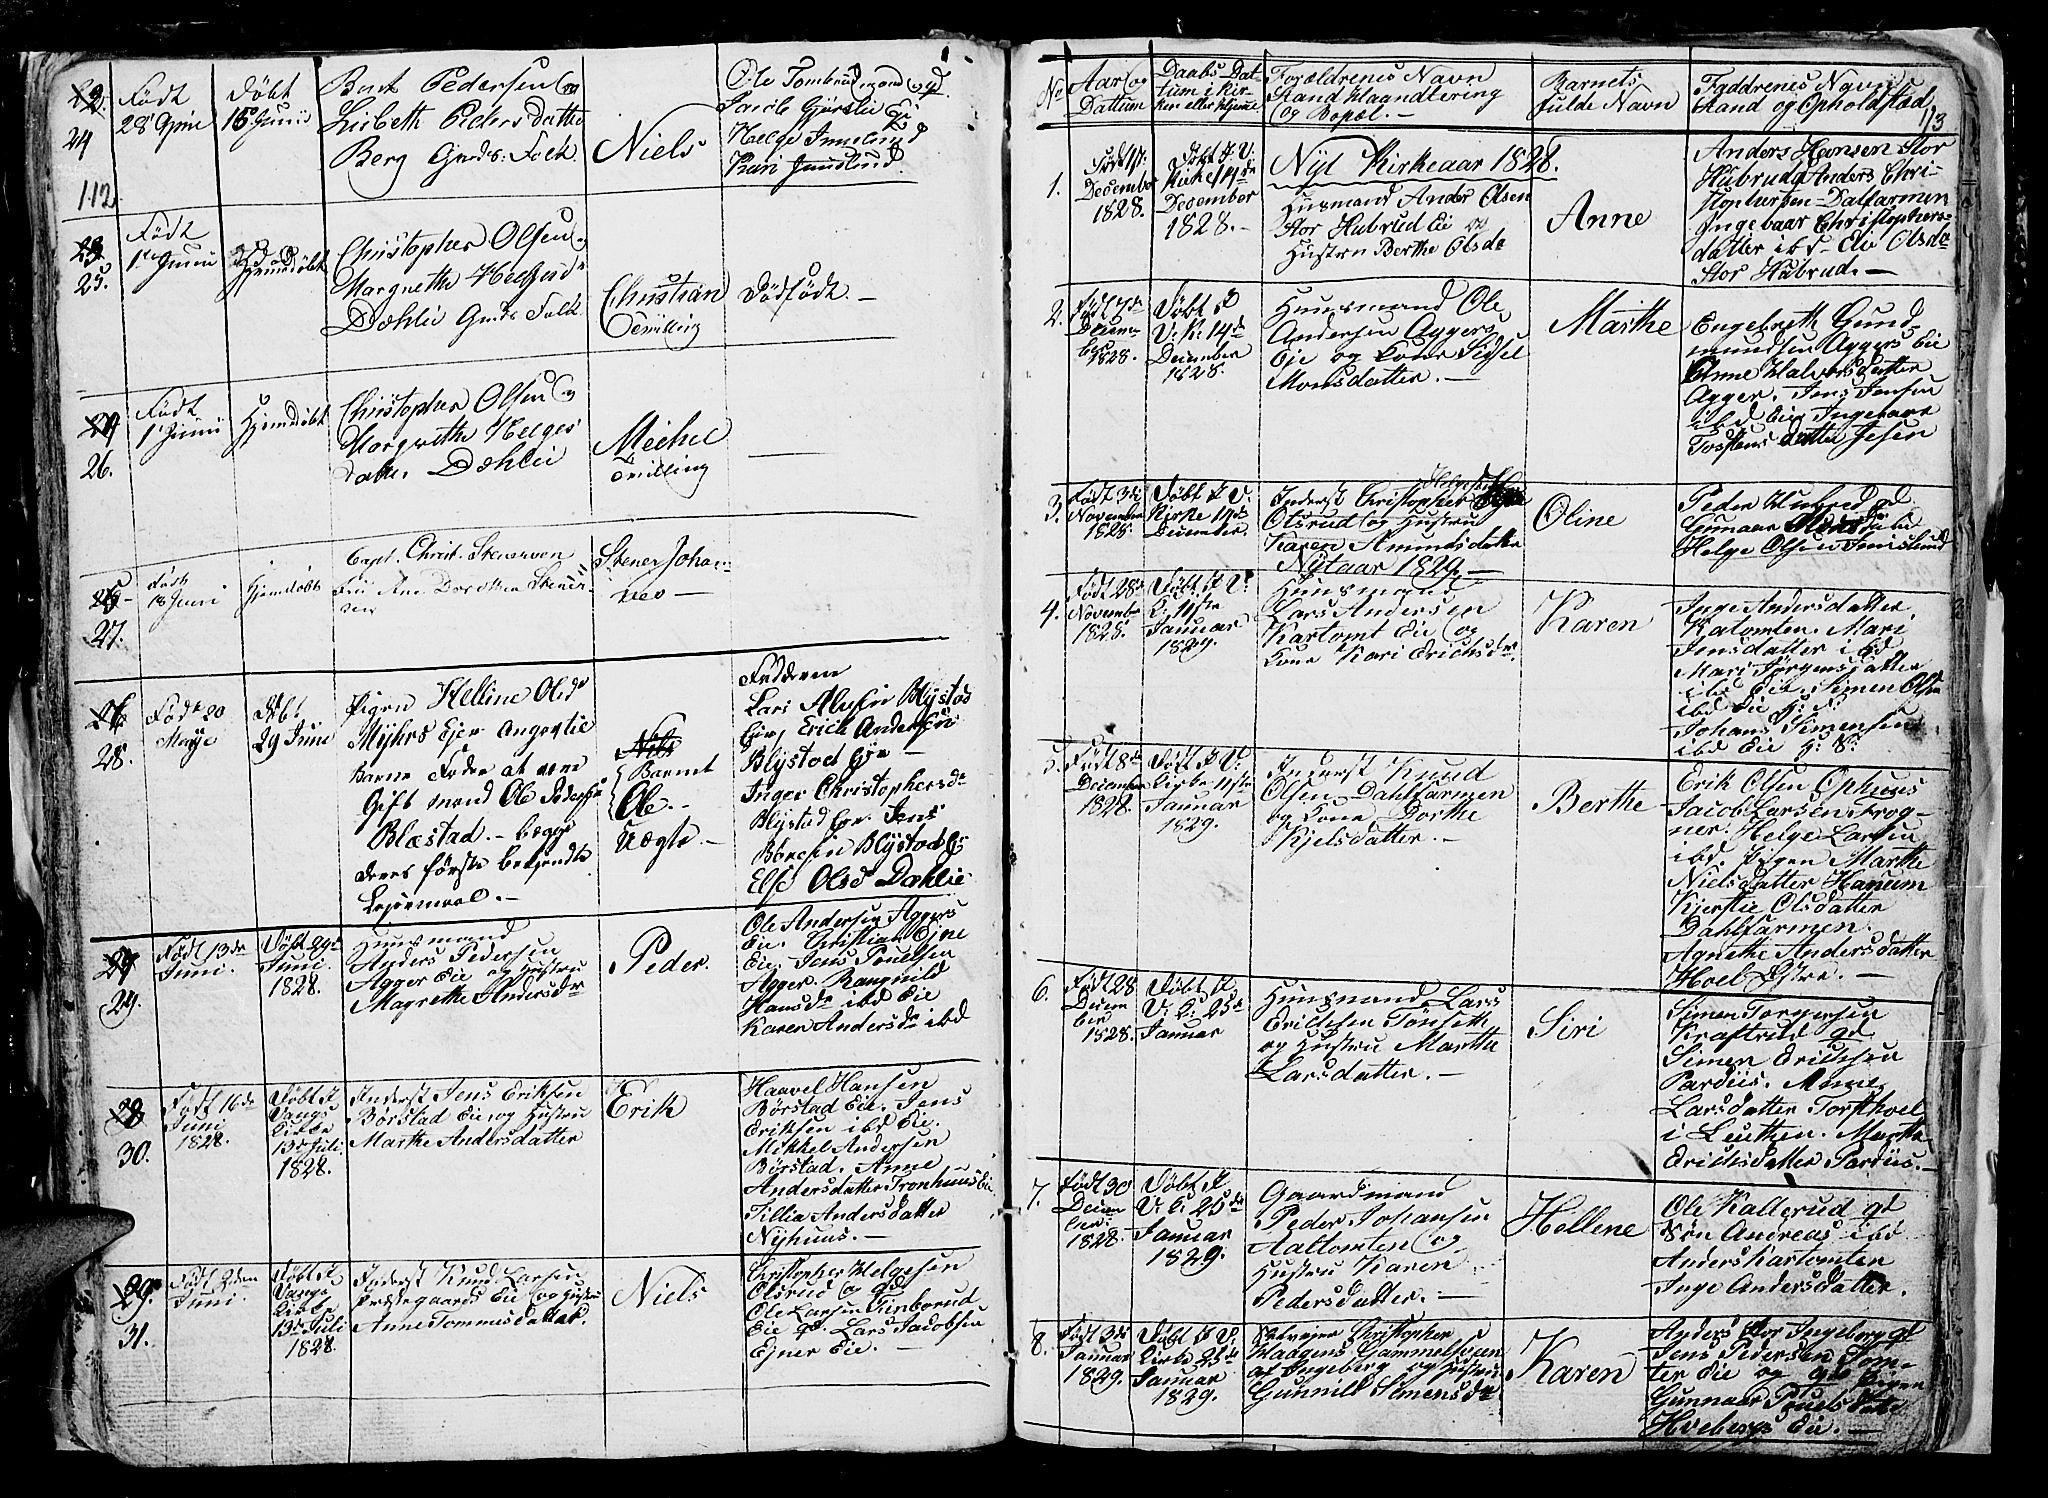 24
112.
Født
28 Apr
Døbt
15 Junii
Pedersen og
Lisbeth Peders Datter
Berg Gaards Folk
Niels
Ole
Helge
Kari
25.
Født
1te Junii
Hjemdøbt
Christopher Olsen og
Margrethe Helgesd
Dæhlie Gaards Folk
Christian
Tvilling
Dødfødt. —
26.
Født
1 Junii
Hjemdøbt
Christopher Olsen og
Margrethe Helges
datter Dæhlie
Michel
Tvilling
27.
Født
18 Juni
Hjemdøbt
Capt. Christ. Stenersen
Fru Ane Dorothea Stener-
sen
Stener Johan-
nes —
28.
Født 20
Maye
Døbt
29 Juni
Pigen Helline Olsdr
Myhrs Eier angivtlie
Barne Fader at være
Gift mand Ole Peders
Blæstad. — begge
deres første bekjendte
Leiermaal. —
Niels
Barnet
Ole. —
Uægte —
Fadderne
Lars Blystad
Eie, Erich Andersen
Blystad Eie —
Inger Christophersdr
Blystad Eie. Jens
Blystads
Else Olsd Dæhlie
29.
Født 13de
Juni.
Døbt 29de
Juni
1828.
Huusmand
Anders Pedersen
Agger Eie og Hustru
Magrethe Andersdr
Peder.
Ole Andersen Aggers
Eie. Christian Ejne
Eie. Jens Poulsen
Agger. Rangnild
Hansdr ibd Eie
Karen Andersdr ibd
30.
Født 16de
Juni
1828.
Døbt i
Vangs
Kirke
13de Juli
1828.
Inderst Jens Eriksen
Børstad Eie og Hustru
Marthe Andersdatter
Erik
Haavel Hansen
Børstad Eie. Jens
Eriksen ibd Eie.
Mikkel Andersen
Børstad. Anne
Andersdatter Tronhuus Eie
Tillia Andersdatter
Nyhuus. —
31.
Født 2den
Juni.
Døbt i
Vangs
Kirke
13de Juli
1828.
Inderst Knud Larsen
Præstegaards Eie og Hustru
Anne Tommesdatter.
Niels
Christopher Helgesen
Olsrud og gd
Ole Larsen Finborud
Eie gd. Lars Jacobsen
Ejner Eie. —
No
Aar og
Dattum
Daabs Dat-
tum i Kir-
ken eller hjemme
Forældrenes Navn
Stand Haandtering
og Bopæl. —
Barnets
fulde Navn
Faddrenes Navne
Stand og Opholdstæd
113
1.
Født
December
1828.
Døbt i V:
Kirke 14de
December
1828. —
Nyt Kirkeaar 1828.
Husmand Ander Olsen
Stor Hubrud Eie og
Hustru Berthe Olsda
Anne
Anders Hansen Stor
Hubrud Anders Chri-
stophersen Dalfarmen
Ingebaar Christophers-
datter ibd — Olsda
Stor Hubrud. —
2.
Født 7de
Decem-
ber
1828.
Døbt i
V: K: 14de
December
1828.
Huusmand Ole
Andersen Aggers
Eie og Kone Sidsel
Monsdatter. —
Marthe
Engebreth Gund-
mundsen Aggers Eie
Anne Halvorsdatter
Agger. Jens Jensen
ibd Eie Ingebaar
Tostensdatter Jesen
3.
Født 3de
November
1828.
Døbt i V:
Kirke 14de
December.
Inderst Christopher Helgesen
Olsrud og Hustru
Karen Amundsdatter
Oline
Peder Hubred gd
Gunnar
Helge Olsen Imislund
Nytaar 1829. —
4.
Født 28de
November
1828.
Døbt i V:
K: 11ste
Januar
1829.
Huusmand
Lars Andersen
Kartomt Eie og
Kone Kari Erichsdr.
Karen
Inge Andersdatter
Katomten. Mari
Jensdatter ibd
Mari Jørgensdatter
ibd Eie. Simen Olsen
ibd Eie
Johans Simensen
ibd Eie
5.
Født 8de
December
1828.
Døbt i V:
Kirke 11ste
Januar
1829.
Inderst Knud
Olsen Dahlfarmen
og Kone Dorthe
Kjelsdatter. —
Berthe
Erik Olsen Ophuus
Jacob Larsen Frog-
ner. Helge Larsen
ibd. Pigen Marthe
Nielsdatter Hanum
Kjerstie Olsdatter
Dahlfarmen.
Agnethe Andersdatter
Hoel Østre. —
6.
Født 28
Decem
ber
1828.
Døbt i
V: K: 25de
Januar
Huusmand Lars
Erichsen Tønseth
og Hustru Marthe
Larsdatter. —
Siri
Simen Torgersen
Kraftrud gd
Simen Erichsen
Pardiis. Marne
Larsdatter Torshoel
i Leuthen. Marthe
Erichsdatter Pardiis.
7.
Født 30
Decem
ber.
1828.
Døbt i
V: K: 25de
Januar
1829.
Gaardmand
Peder Johansen
Aaltomten og
Hustru Karen
Pedersdatter. —
Hellene
Ole Kallerud gd
Søn Andreas ibd
Anders Kartomten
Inge Andersdatter.
8.
Født 3de
Januar
1829.
Døbt i V.
Kirke 25de
Januar
1829.
Selveier Christopher
Haagens Gammelsveen
af Ingeberg og Hustru
Gunnild Simensdr
Karen
Anders Stor Ingeberg gd
Jens Pedersen Tom-
ter Eie og
Gunnar Pouelsdatter
Hvebergs Eie. —